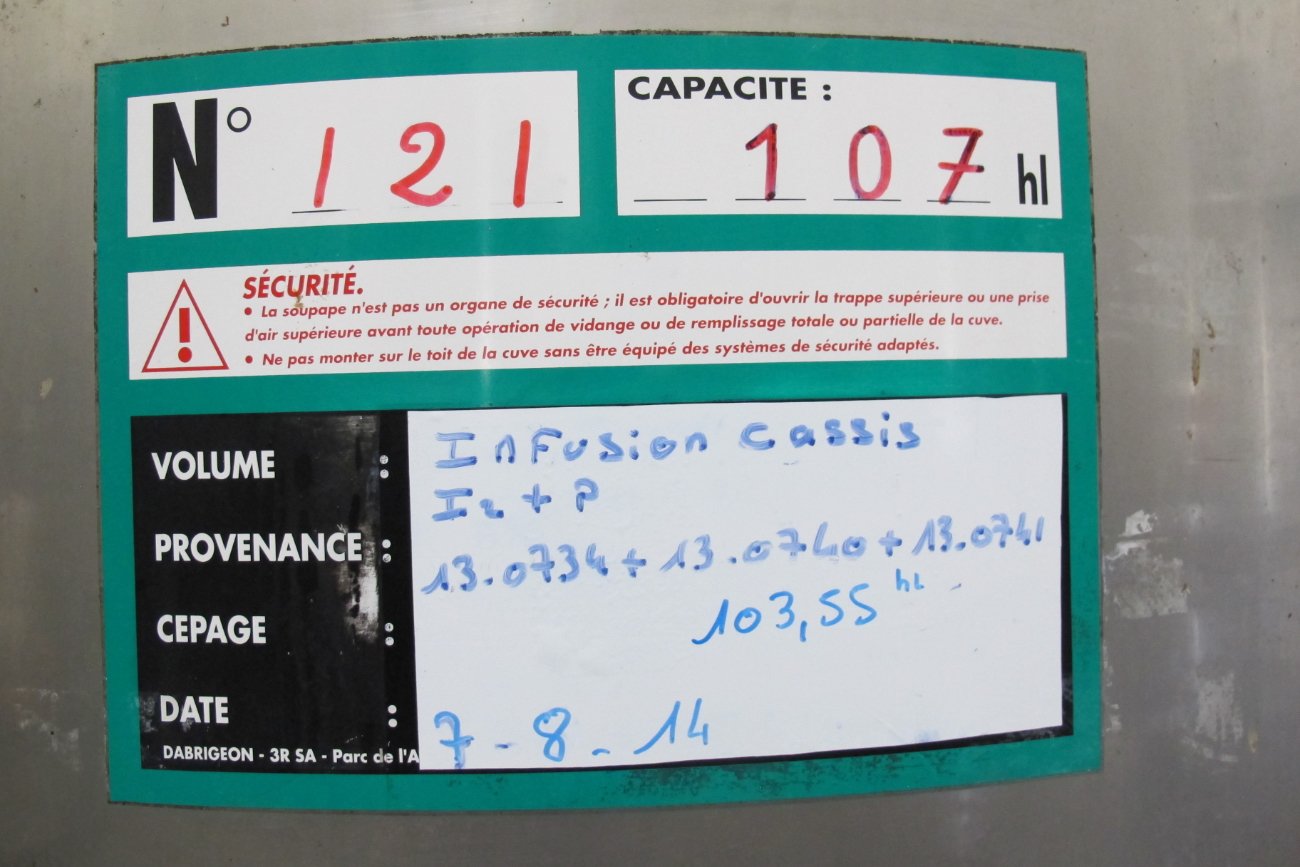 N° 121
CAPACITE :
107 hl
SÉCURITÉ.
• La soupape n'est pas un organe de sécurité ; il est obligatoire d'ouvrir la trappe supérieure ou une prise
d'air supérieure avant toute opération de vidange ou de remplissage totale ou partielle de la cuve.
• Ne pas monter sur le toit de la cuve sans être équipé des systèmes de sécurité adaptés.
VOLUME :
Infusion cassis
I2 + P
PROVENANCE :
13.0734 + 13.0740 + 13.0741
CEPAGE :
103,55 hL
DATE :
7-8-14
DABRIGEON - 3R SA - Parc de l'A